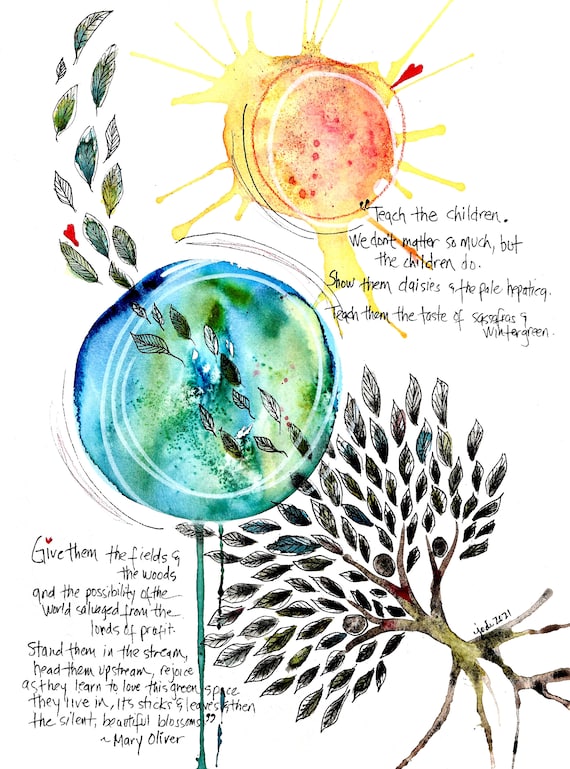 "Teach the children.
We don't matter so much, but
the children do.
Show them daisies & the pale hepatica.
Teach them the taste of sassafras &
wintergreen.
Give them the fields &
the woods
and the possibility of the
world salvaged from the
lords of profit.
Stand them in the stream,
head them upstream, rejoice
as they learn to love this green space
they live in, its sticks & leaves & then
the silent, beautiful blossoms."
~ Mary Oliver
jodi 2021